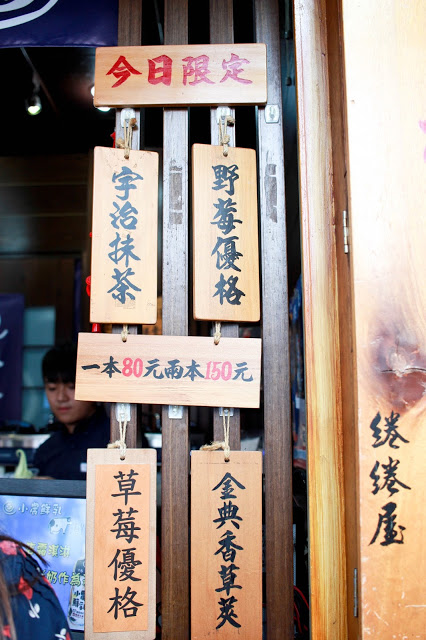 今日限定
宇治抹茶
野莓優格
一本80元兩本150元
草莓優格
金典香草莢
綣綣屋
小農鮮乳